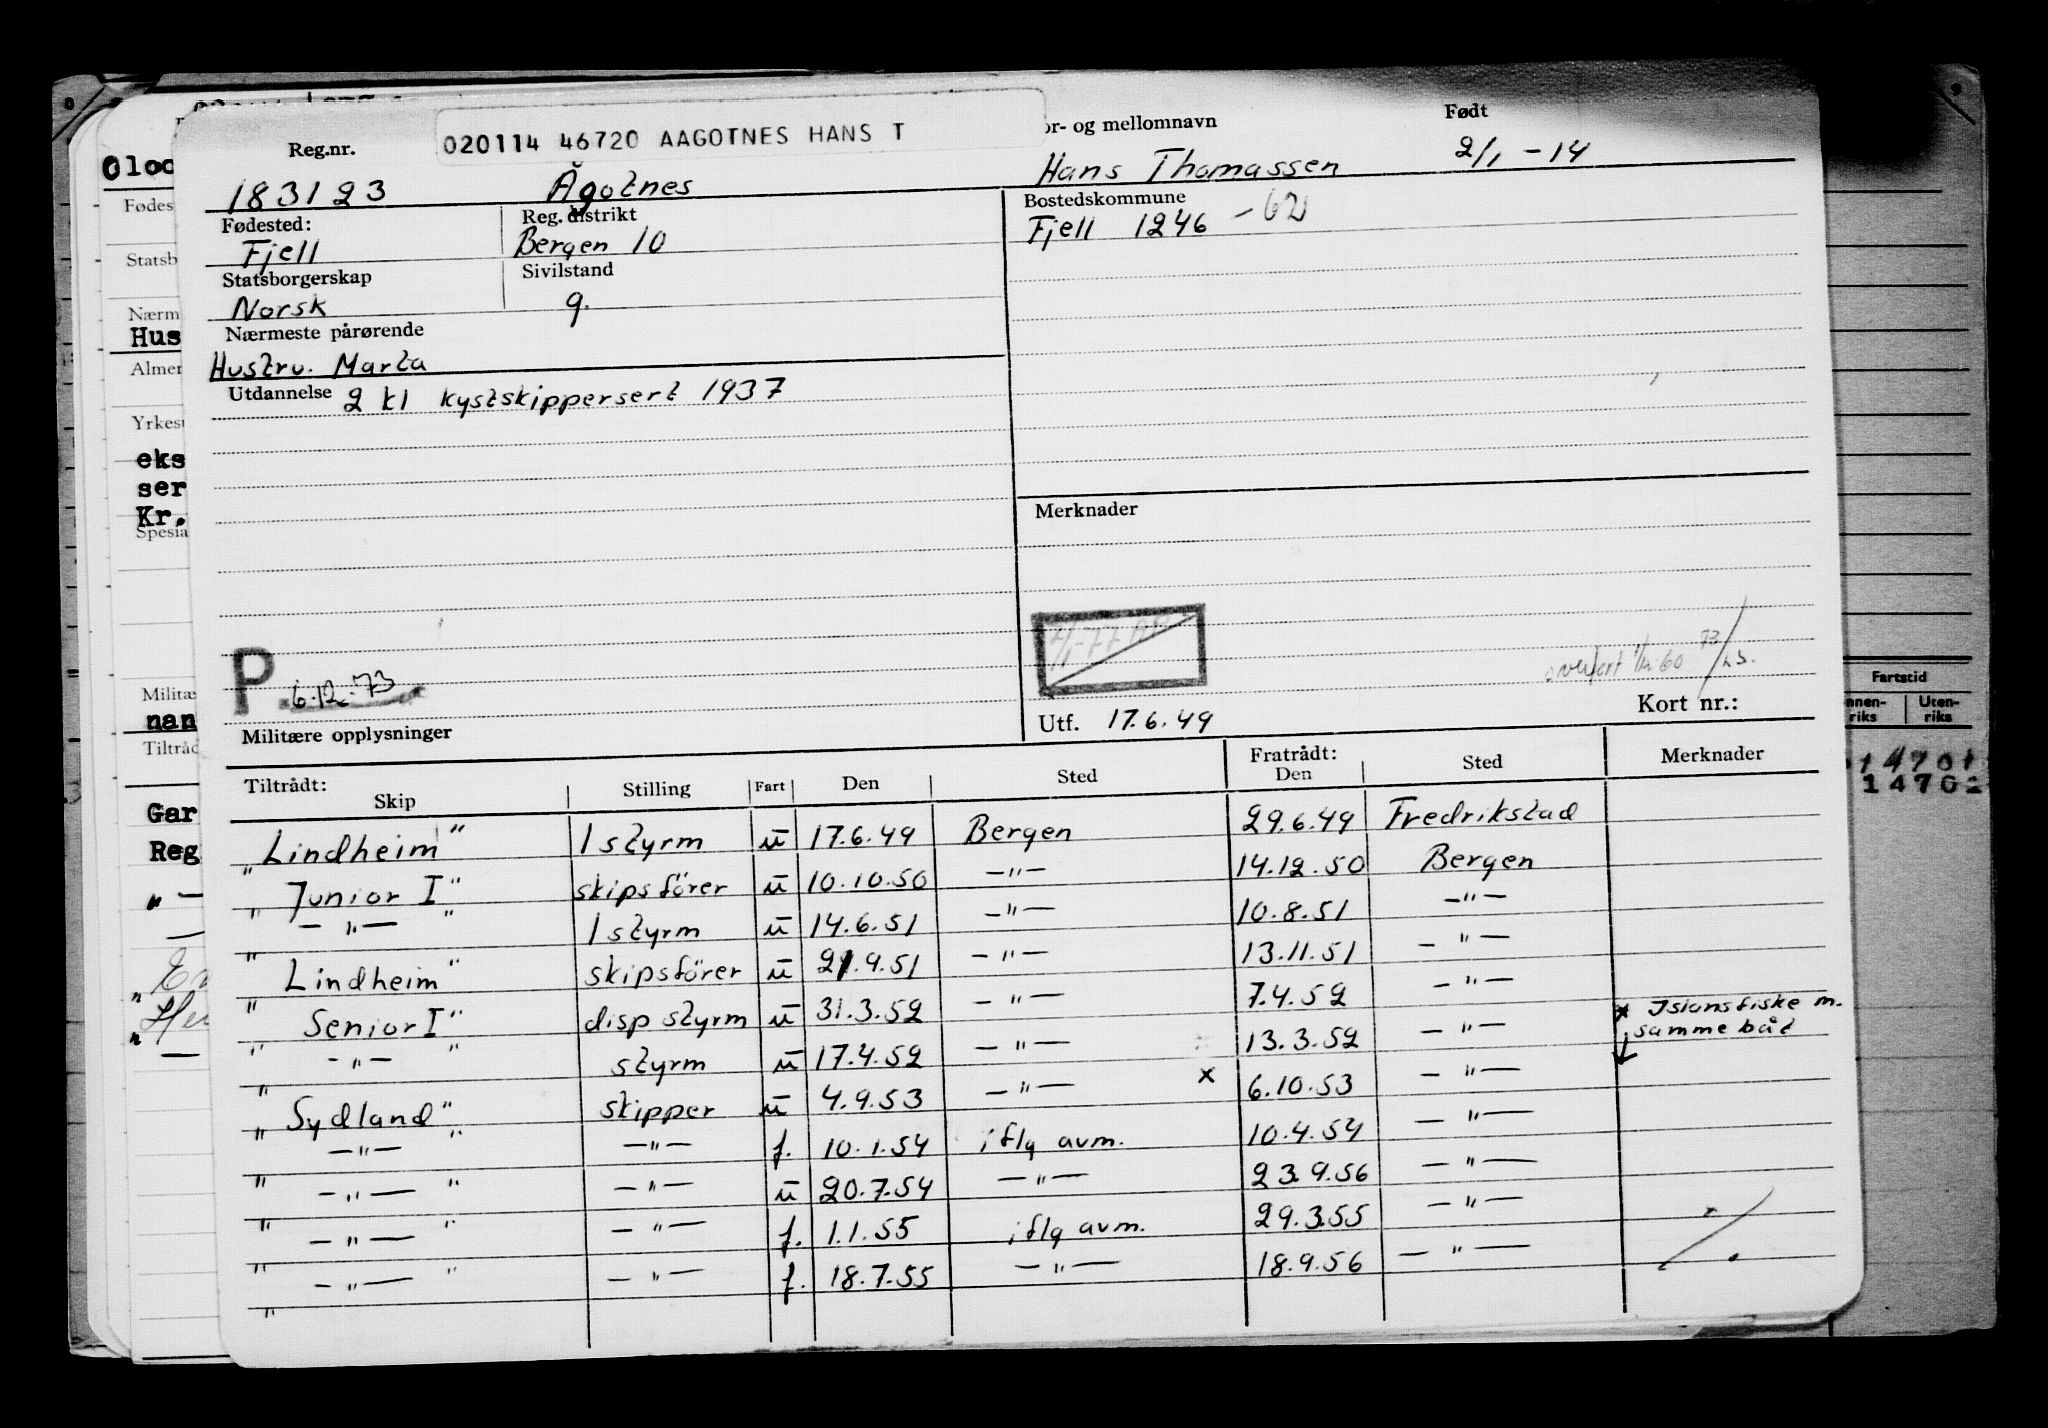 020114 46720 AAGOTNES HANS T
Reg.nr. or- og mellomnavn Født
183123 Ågotnes Hans Thomassen 2/1 -14
Fødested: Reg. distrikt Bostedskommune
Fjell Bergen 10 Fjell 1246 -62
Statsborgerskap Sivilstand
Norsk g.
Nærmeste pårørende
Hustru. Marta
Utdannelse 2 kl kystskippersert 1937
Merknader
P. 6.12.73
overført 60 73
Militære opplysninger Utf. 17.6.49 Kort nr.:
Tiltrådt: Fratrådt:
Skip Stilling Fart Den Sted Den Sted Merknader
"Lindheim" 1 styrm u 17.6.49 Bergen 29.6.49 Fredrikstad
"Junior I" skipsförer u 10.10.50 —"— 14.12.50 Bergen
" —"— " 1 styrm u 14.6.51 —"— 10.8.51 —"—
"Lindheim" skipsförer u 21.9.51 —"— 13.11.51 —"—
"Senior I" disp styrm u 31.3.52 —"— 7.4.52 —"— x Islansfiske m.
" —"— " styrm u 17.4.52 —"— 13.3.52 —"— samme båt
"Sydland" skipper u 4.9.53 —"— x 6.10.53 —"—
" —"— " —"— f. 10.1.54 iflg avm. 10.4.54 —"—
" —"— " —"— u 20.7.54 —"— 23.9.56 —"—
" —"— " —"— f. 1.1.55 iflg avm. 29.3.55 —"—
" —"— " —"— f. 18.7.55 —"— 18.9.56 —"—
"
Oloc
Fødes
Statsb
Nærm
Hus
Almer
Yrkesu
eks
ser
Kr.
Spesia
Militæ
nan
Tiltråd
Gar
Reg
Fartstid
nnen-riks Uten-riks
14701
14702